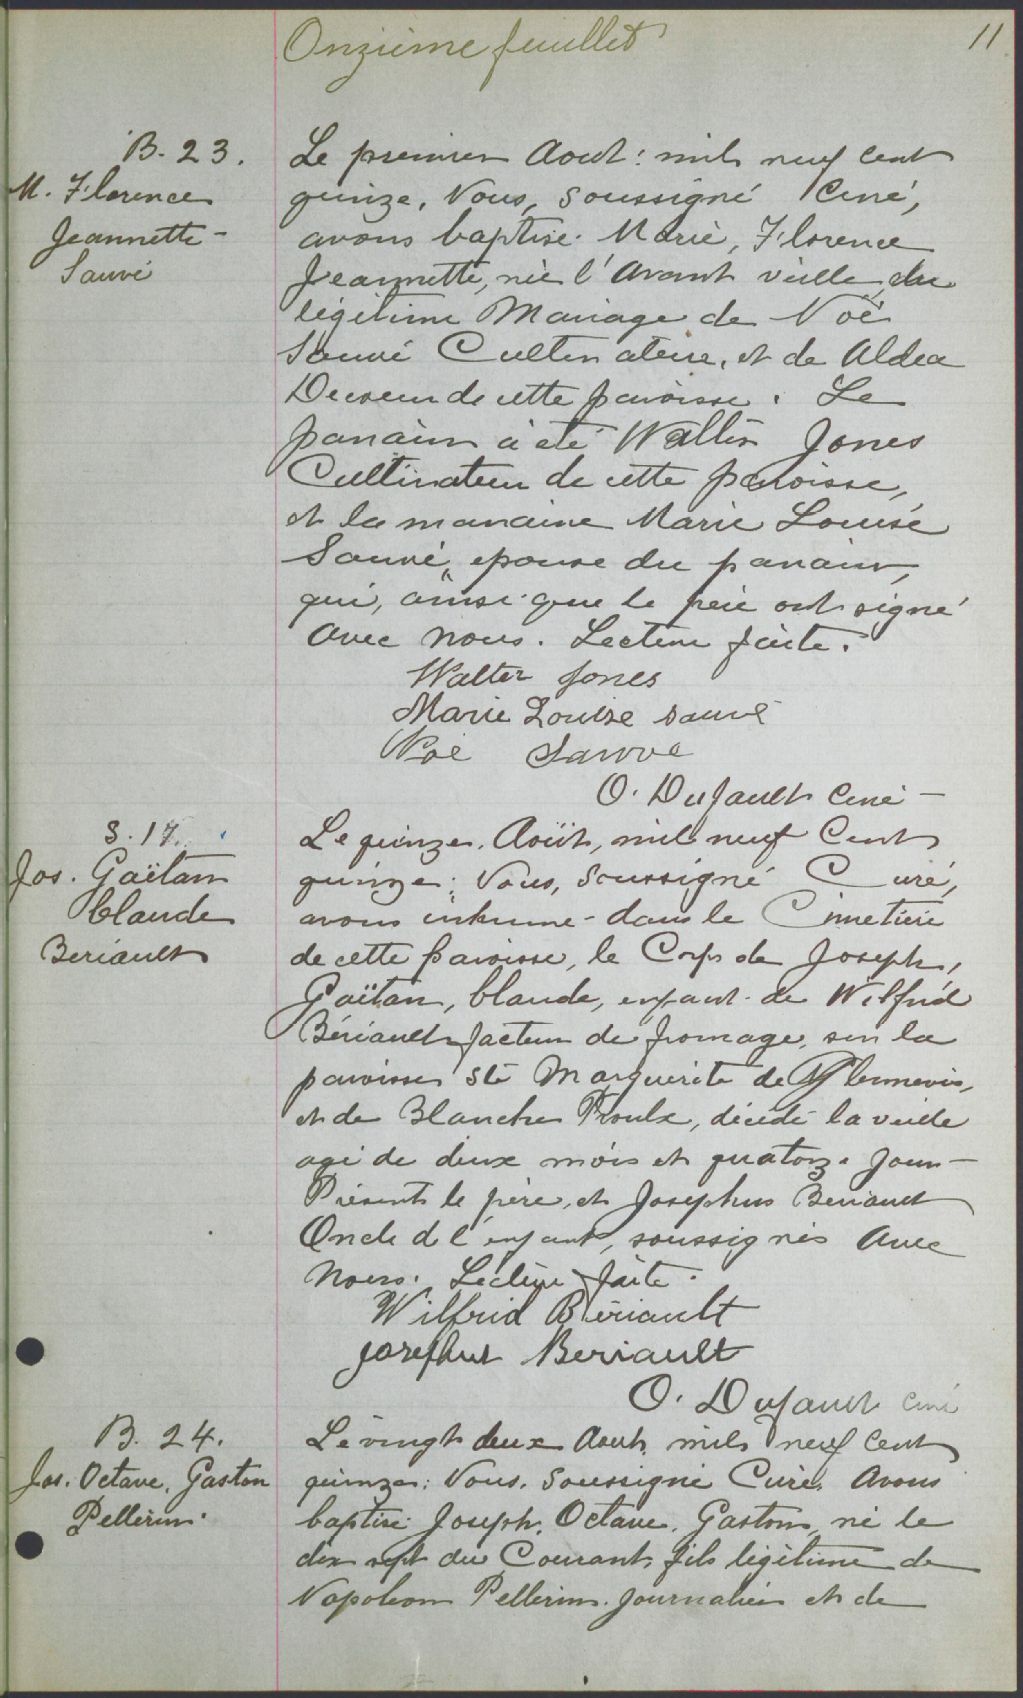 Onzième feuillet
11
B. 23.
M. Florence
Jeannette -
Sauvé
Le premier Aout : mil neuf cent
quinze, Nous, soussigné Curé,
avons baptisé Marie, Florence
Jeannette, née l'avant veille, du
légitime Mariage de Noë
Sauvé Cultivateur, et de Aldea
de cette paroisse. Le
parrain a été Walter Jones
Cultivateur de cette paroisse,
et la marraine Marie Louise
Sauvé, epouse du parrain,
qui, ainsi que le père ont signé
avec nous. Lecture faite.
Walter Jones
Marie Louise Sauvé
Noé Sauve
O. Dufault curé -
S. 17.
Jos. Gaëtan
Claude
Beriault
Le quinze Août, mil neuf Cent
quinze : Nous, Soussigné Curé,
avons inhumé dans le Cimetière
de cette Paroisse, le Corps de Joseph,
Gaëtan, Claude, enfant de Wilfrid
Bériault facteur de fromage, sur la
paroisse Ste Marguerite de
et de Blanche Proulx, décédé la veille
agé de deux mois et quatorze jours -
Présents le père, et Josephus Beriault
Oncle de l'enfant, soussignés Avec
Nous. Lecture faite.
Wilfrid Bériault
Josephus Beriault
O. Dufault curé
B. 24.
Jos. Octave, Gaston
Pellerin.
Le vingt deux Aout, mil neuf Cent
quinze : Nous, Soussigné Curé, Avons
baptisé Joseph, Octave, Gaston, né le
dix sept du Courant, fils légitime de
Napoleon Pellerin, Journalier et de